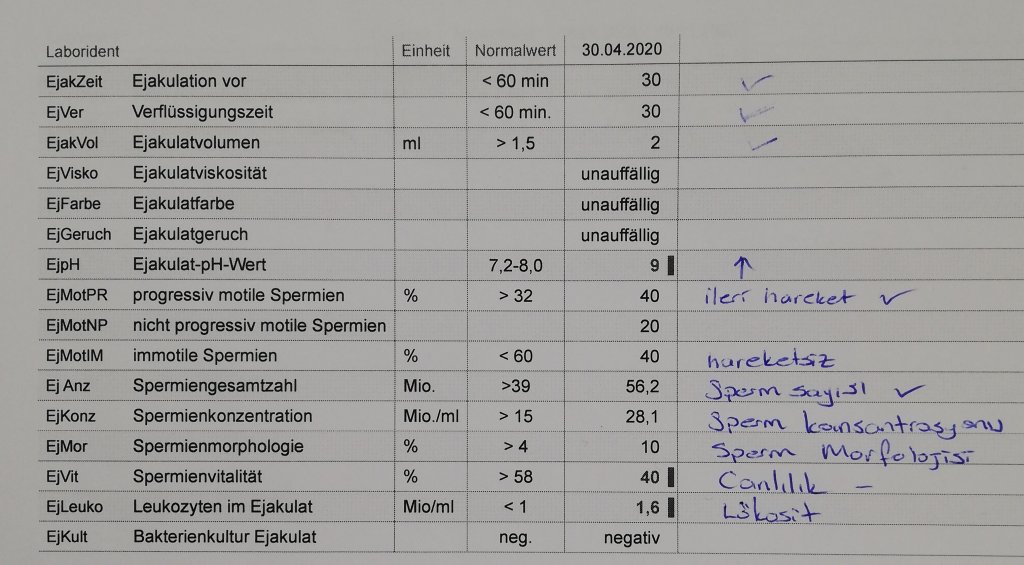 Laborident Einheit Normalwert 30.04.2020
EjakZeit Ejakulation vor < 60 min 30 ✓
EjVer Verflüssigungszeit < 60 min. 30 ✓
EjakVol Ejakulatvolumen ml > 1,5 2 ✓
EjVisko Ejakulatviskosität unauffällig
EjFarbe Ejakulatfarbe unauffällig
EjGeruch Ejakulatgeruch unauffällig
EjpH Ejakulat-pH-Wert 7,2-8,0 9 ↑
EjMotPR progressiv motile Spermien % > 32 40 ileri hareket ✓
EjMotNP nicht progressiv motile Spermien 20
EjMotIM immotile Spermien % < 60 40 hareketsiz
Ej Anz Spermiengesamtzahl Mio. >39 56,2 Sperm sayısı ✓
EjKonz Spermienkonzentration Mio./ml > 15 28,1 Sperm konsantrasyonu
EjMor Spermienmorphologie % > 4 10 Sperm Morfolojisi
EjVit Spermienvitalität % > 58 40 Canlılık –
EjLeuko Leukozyten im Ejakulat Mio/ml < 1 1,6 Lökosit
EjKult Bakterienkultur Ejakulat neg. negativ